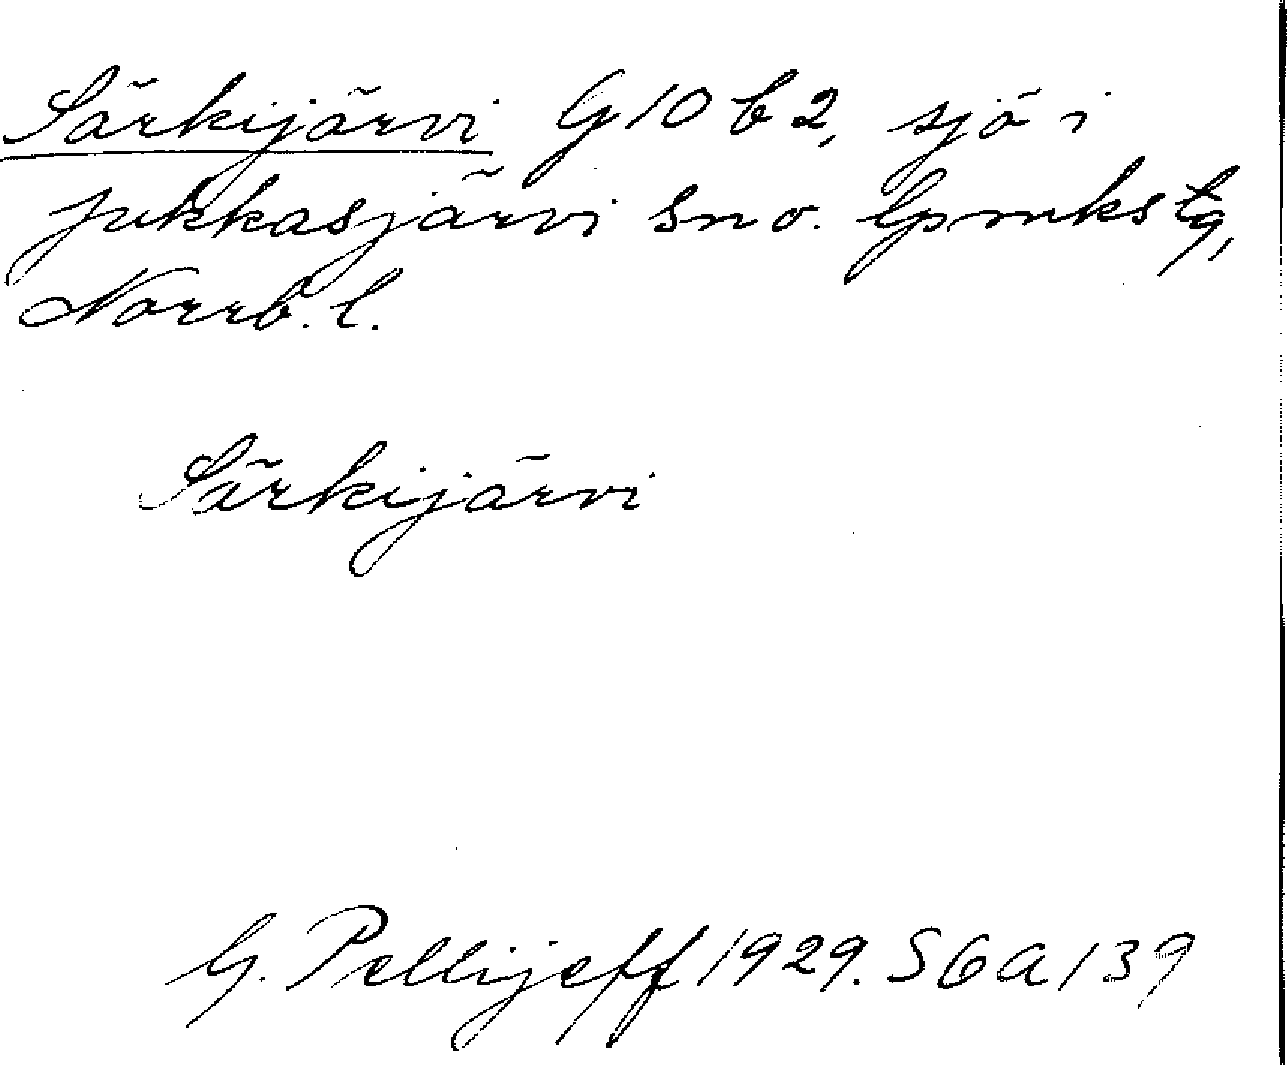 Särkijärvi G 10 b 2, sjö i
Jukkasjärvi sn o. lpmkstg,
Norrb. l.
Särkijärvi
G. Pellijeff 1929. S 6 a 139